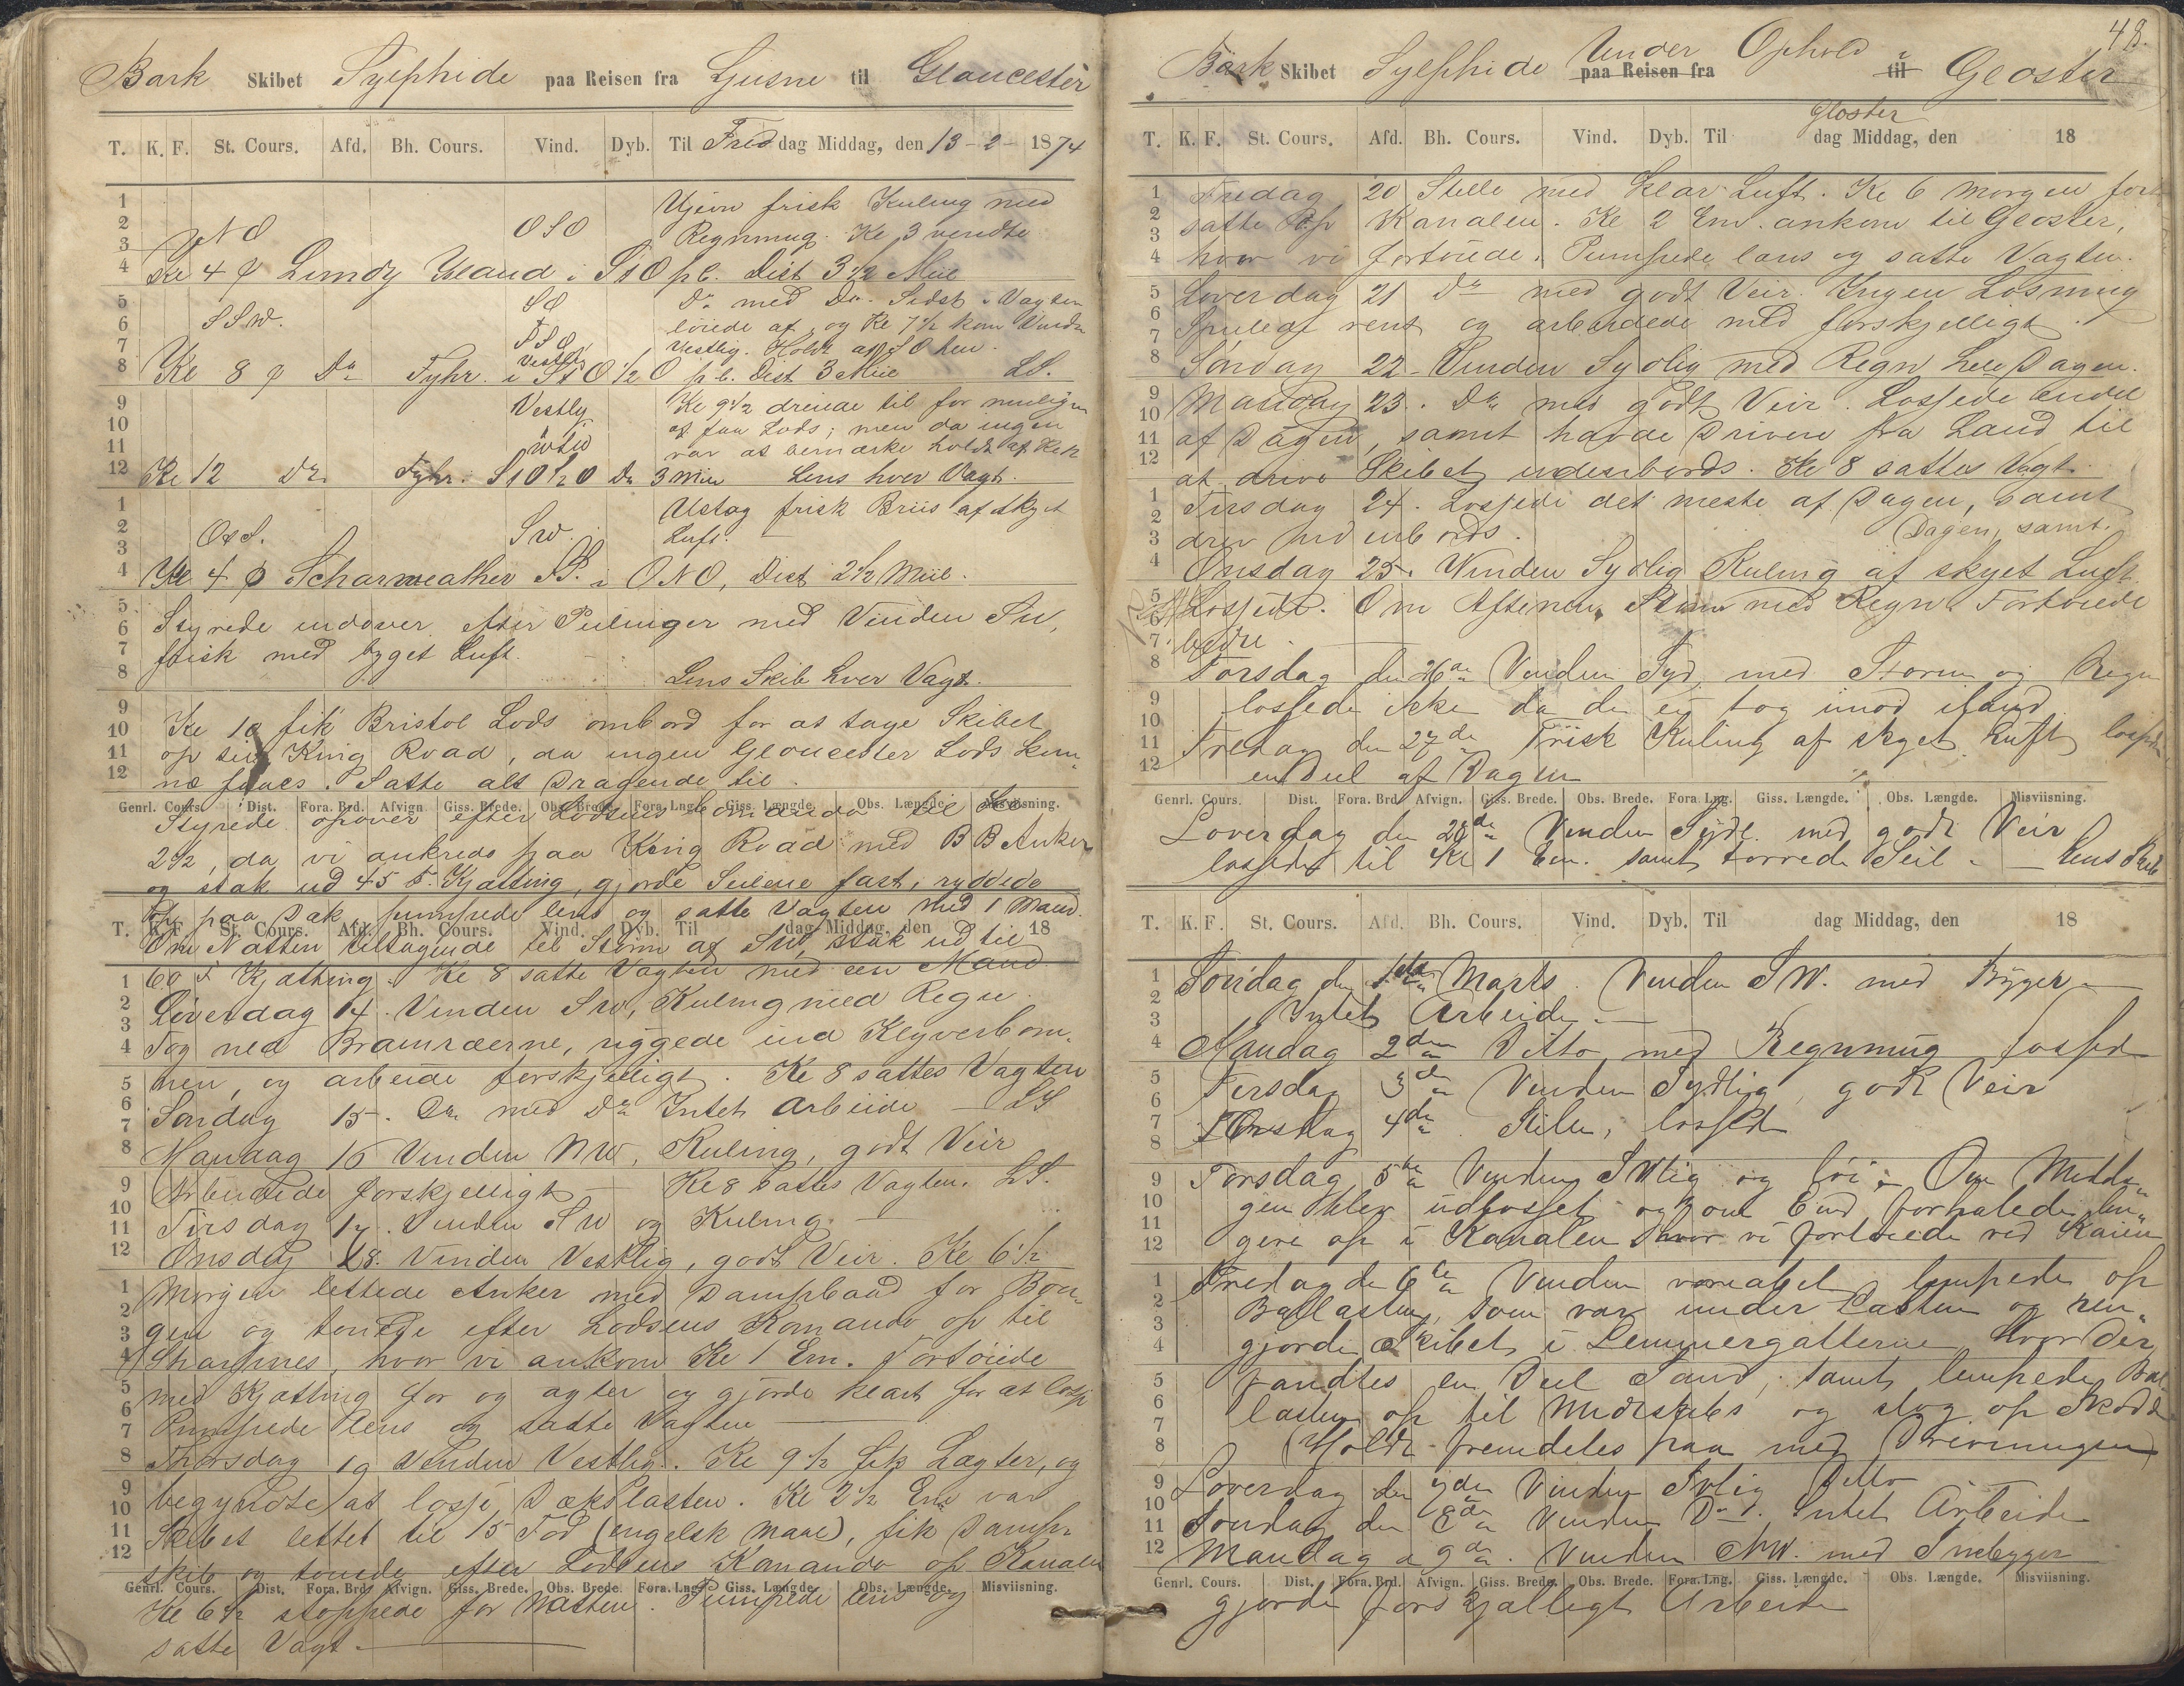 Bark Skibet Sylphide paa Reisen fra Ljusne til Gloucester
T. K. F. St. Cours. Afd. Bh. Cours. Vind. Dyb. Til Freddag Middag, den 13-2-1874
Ujevn frisk Kuling med
NO OSO Regnmug. Kl 3 vendte
Kl 4 p Lundy Island i StO pl. Dist 3 1/2 Miil
SO Do med Do. Sidst i Vagten
SSW. løiede af, og Kl 7 1/2 kom Vinden
Vestlig. Holdt af SO hen.
Kl 8 p Do Fyhr. i StO 1/2 O pl. Dist 3 Miil LS.
Vestlig Kl 9 1/2 dreiede til for muligen
at faa Lods; men da ingen
var at bemærke holdt af Kl
Kl 12 Do Fyhr. StO 1/2 O Do 3 Miil Lens hver Vagt.
Ustag frisk Briis af skyet
OtS. SW. Luft.
Kl 4 p Scharweather FS. i ONO, Dist 2 1/2 Miil.
Styrede indover efter Peilinger med Vinden SW,
frisk med byget Luft.
Lens Skib hver Vagt.
Kl 10 fik Bristol Lods ombord for at tage Skibet
op til King Road, da ingen Gloucester Lods kun-
ne faaes. Satte alt Dragende til.
Genrl. Cours. Dist. Fora. Brd. Afvign. Giss. Brede. Obs. Brede. Fora. Lng. Giss. Længde. Obs. Længde. Misviisning.
Styrede opover efter Lodsens Comando til Kl
2 1/2, da vi ankrede paa King Road med BB Anker
og stak ud 45 F. Kjætting, gjorde Seilene fast, ryddede
op paa Dæk, pumpede lens og satte Vagten med 1 Mand.
T. K. F. St. Cours. Afd. Bh. Cours. Vind. Dyb. Til dag Middag, den 18
Om Natten tiltagende til Storm af SW, stak ud til
60 F Kjætting. Kl 8 satte Vagten med een Mand
Løverdag 14. Vinden SW, Kuling med Regn.
Tog ned Bramræerne, riggede ind Klyverbom-
men, og arbeide forskjelligt. Kl 8 sattes Vagten
Søndag 15. Do med Do Intet Arbeide - LS
Mandag 16 Vinden NW, Kuling, godt Veir
Arbeidede forskjelligt - Kl 8 sattes Vagten. LS.
Tirsdag 17. Vinden SW og Kuling. -
Onsdag 18. Vinden Vestlig, godt Veir. Kl 6 1/2
Morgen lettede Anker med Dampbaad for Bou-
gen og touede efter Lodsens Komando op til
Sharpnes, hvor vi ankom Kl 1 Em. Fortøiede
med Kjætting for og agter og gjorde klart for at losse
Pumpede lens og satte Vagten
Thorsdag 19 Vinden Vestlig. Kl 9 1/2 fik Lagter, og
begyndte at losse Dækslasten. Kl 2 1/2 Em var
Skibet lettet til 15 Fod (engelsk Maal), fik Damp-
skib og touede efter Lodsens Komando op Kanalen
Genrl. Cours. Dist. Fora. Brd. Afvign. Giss. Brede. Obs. Brede. Fora. Lng. Giss. Længde. Obs. Længde. Misviisning.
Kl 6 1/2 stoppede for Natten. Pumpede lens og
satte Vagt.
48.
Bark Skibet Sylphide Under Ophold i Gloster
paa Reisen fra til
Gloster
T. K. F. St. Cours. Afd. Bh. Cours. Vind. Dyb. Til dag Middag, den 18
Fredag 20 Stille med klar Luft. Kl 6 Morgen fort-
satte op Kanalen. Kl 2 Em. ankom til Gloster,
hvor vi fortøiede. Pumpede lens og satte Vagten.
Løverdag 21 Do med godt Veir. Ingen Losning
Spulede rent og arbeidede med forskjelligt.
Søndag 22 - Vinden Sydlig med Regn hele Dagen.
Mandag 23. Do med godt Veir. Lossede endel
af Dagen, samt havde Drivere fra Land til
at drive Skibet indenbords. Kl 8 sattes Vagt.
Tirsdag 24. Lossede det meste af Dagen, samt
drev indenbords. Dagen, samt.
Onsdag 25. Vinden Sydlig Kuling af skyet Luft.
Lossede. Om Aftenen Storm med Regn. Fortøiede
bedre.
Torsdag den 26de Vinden Syd, med Storm og Regn
lossede ikke da de ei tog imod iland.
Fredag den 27de Frisk Kuling af skyet Luft lossede
en Deel af Dagen
Genrl. Cours. Dist. Fora. Brd. Afvign. Giss. Brede. Obs. Brede. Fora. Lng. Giss. Længde. Obs. Længde. Misviisning.
Løverdag den 28de Vinden Sydl. med godt Veir
lossede til Kl 1 Em. samt tørrede Seil - Lens Skib
T. K. F. St. Cours. Afd. Bh. Cours. Vind. Dyb. Til dag Middag, den 18
Søndag den 1ste Marts. Vinden SW. med Bÿger
Intet Arbeide.
Mandag 2den Ditto med Regnmug lossede
Tirsdag 3de Vinden Sydlig, godt Veir
Onsdag 4de Stille, lossede
Torsdag 5te Vinden SWlig og løi. Om Midda-
gen blev udlosset og Kl Em. forhalede læn-
gere op i Kanalen hvor vi fortøiede ved Kaien
Fredag de 6te Vinden vareabel lempede op
Ballasten, som var under Lasten og ren-
gjorde Skibet i Lemmergatterne, hvor Der
fandtes en Deel Sand, samt lempede Bal-
lasten op til Midskibs og slog op Skodd
(Holdt fremdeles paa med Drivningen)
Løverdag den 7de Vinden Svlig Ditto
Søndag den 8de Vinden Do Intet Arbeide
Mandag d 9de. Vinden NW. med Snebyger
Genrl. Cours. Dist. Fora. Brd. Afvign. Giss. Brede. Obs. Brede. Fora. Lng. Giss. Længde. Obs. Længde. Misviisning.
gjorde forskjælligt Arbeide